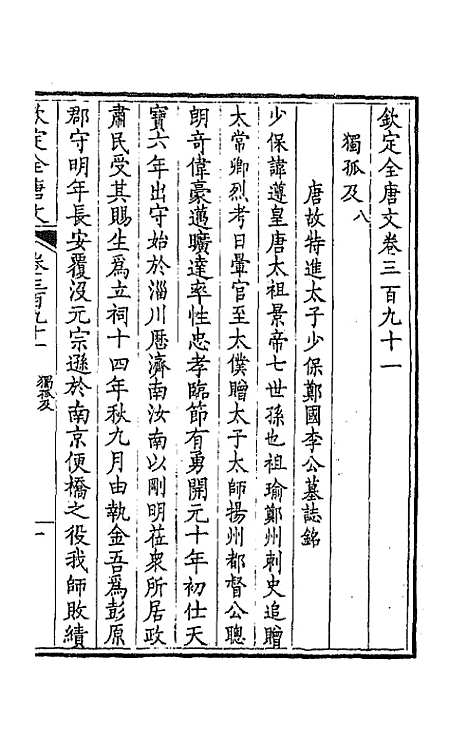 欽定全唐文卷三百九十一
獨孤及八
唐故特進太子少保鄭國李公墓誌銘
少保諱遵皇唐太祖景帝七世孫也祖瑜鄭州刺史追贈
太常卿烈考日暈官至太僕贈太子太師揚州都督公聰
朗奇偉豪邁曠達率性忠孝臨節有勇開元十年初仕天
寶六年出守始於淄川厯濟南汝南以剛明莅衆所居政
肅民受其賜生爲立祠十四年秋九月由執金吾爲彭原
郡守明年長安覆沒元宗遜於南京便橋之役我師敗績
欽定全唐文
卷三百九十一
獨孤及
一